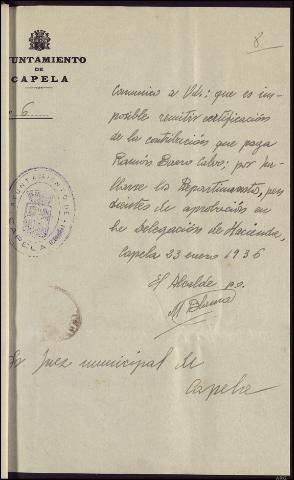 8
YUNTAMIENTO
DE
CAPELA
6
Comunico a Vd.: que es im-
posible remitir certificación
de la contribución que paga
Ramón Calvo; por ha-
llarse los Repartimientos, pen-
dientes de aprobación en
la Delegación de Hacienda,
Capela 23 enero 1936
El Alcalde p.o.
Sr Juez municipal de
Capela